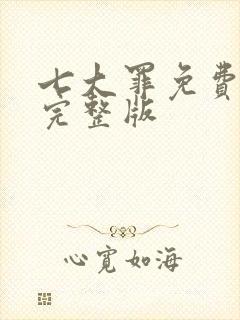 七大罪免费
完整版
心宽如海